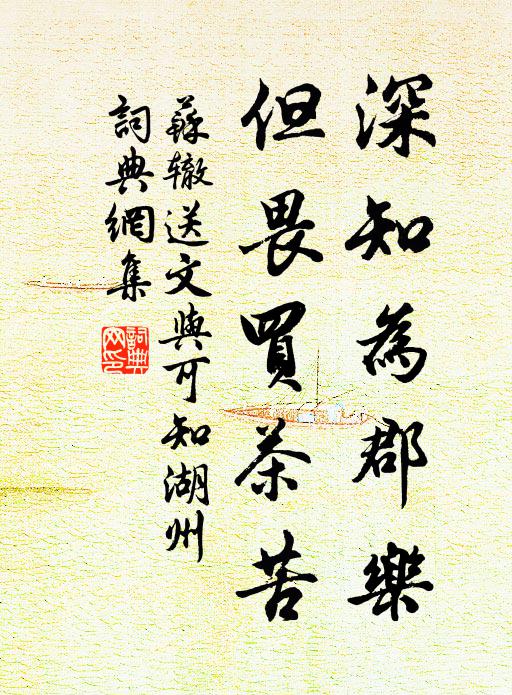 深知為郡樂
但畏買茶苦
蘇辙送文與可知湖州
詞典網集
詞典網印